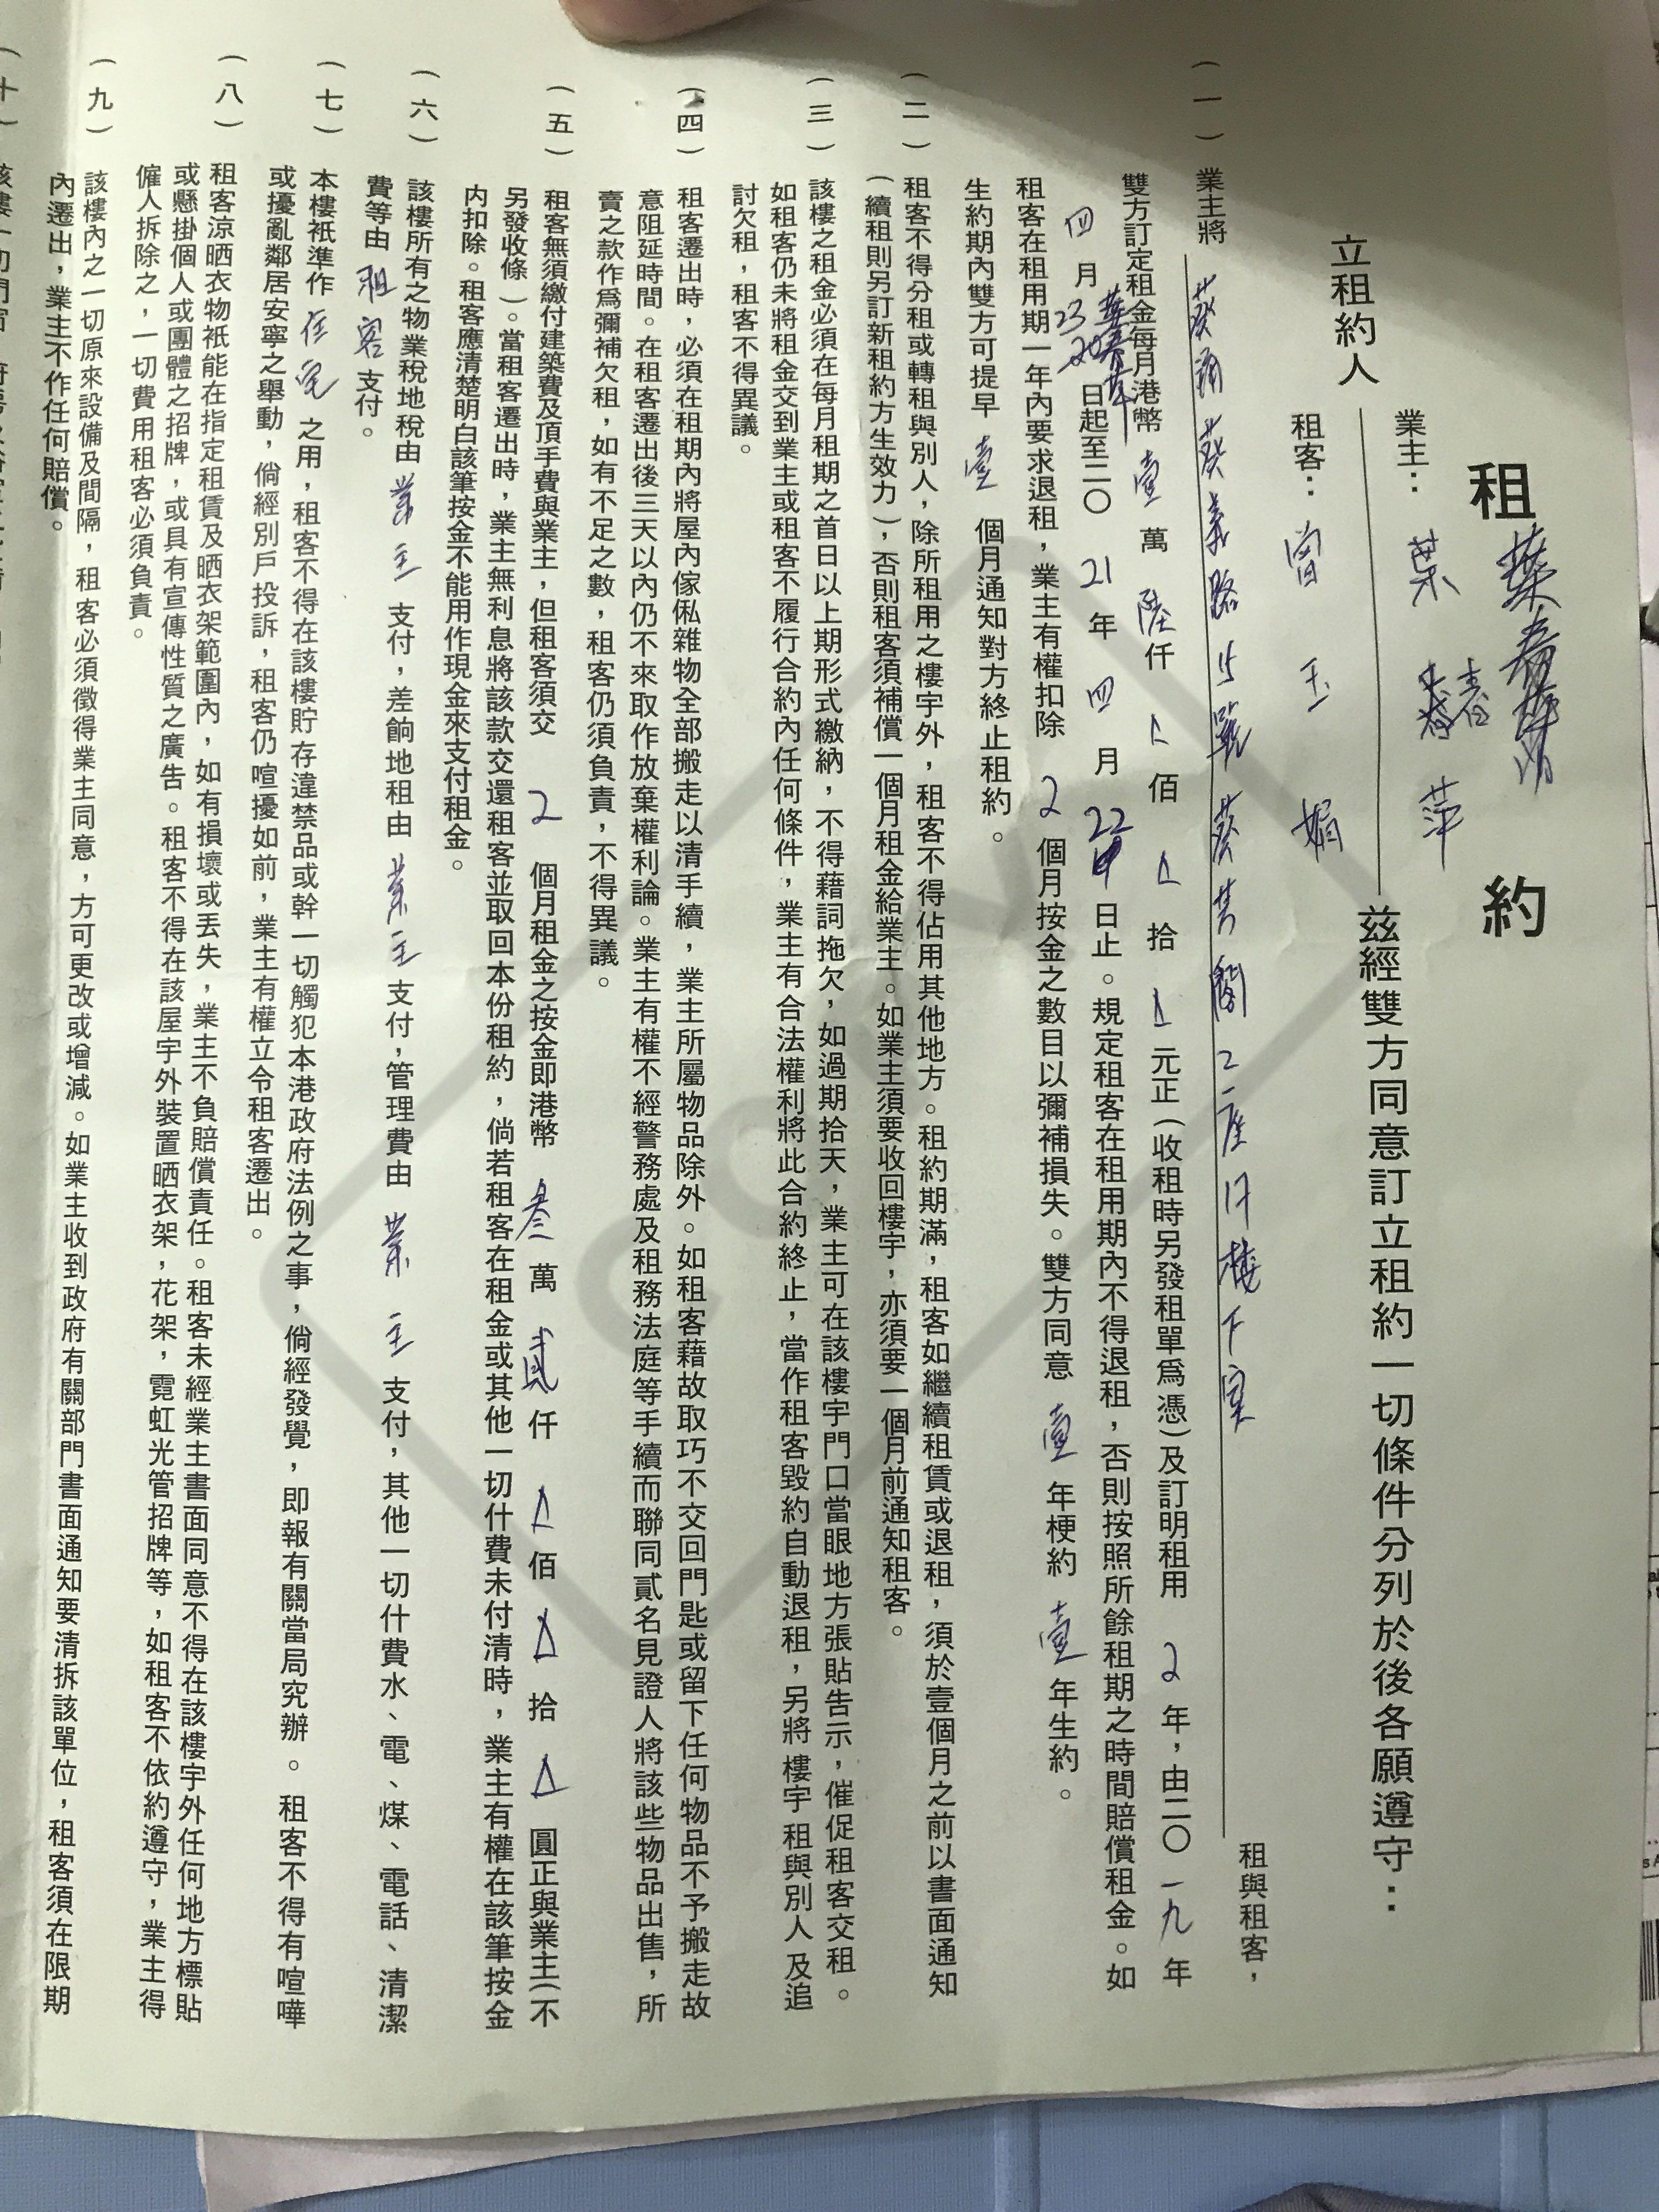 租約
葉春萍
立租約人
業主：葉春萍
租客：曾玉娟
茲經雙方同意訂立租約一切條件分列於後各願遵守：
(一) 業主將 葵涌葵義路15號葵芳閣2座17樓F室 租與租客，
雙方訂定租金每月港幣 壹 萬 陸 仟 △ 佰 △ 拾 △ 元正(收租時另發租單為憑)及訂明租用 2 年，由二〇一九年
四 月 23 日起至二〇 21 年 四 月 22 日止。規定租客在租用期內不得退租，否則按照所餘租期之時間賠償租金。如
租客在租用期一年內要求退租，業主有權扣除 2 個月按金之數目以彌補損失。雙方同意 壹 年梗約 壹 年生約。
生約期內雙方可提早 壹 個月通知對方終止租約。
(二) 租客不得分租或轉租與別人，除所租用之樓宇外，租客不得佔用其他地方。租約期滿，租客如繼續租賃或退租，須於壹個月之前以書面通知
(續租則另訂新租約方生效力)，否則租客須補償一個月租金給業主。如業主須要收回樓宇，亦須要一個月前通知租客。
(三) 該樓之租金必須在每月租期之首日以上期形式繳納，不得藉詞拖欠，如過期拾天，業主可在該樓宇門口當眼地方張貼告示，催促租客交租。
如租客仍未將租金交到業主或租客不履行合約內任何條件，業主有合法權利將此合約終止，當作租客毀約自動退租，另將樓宇租與別人及追
討欠租，租客不得異議。
(四) 租客遷出時，必須在租期內將屋內傢俬雜物全部搬走以清手續，業主所屬物品除外。如租客藉故取巧不交回門匙或留下任何物品不予搬走故
意阻延時間。在租客遷出後三天以內仍不來取作放棄權利論。業主有權不經警務處及租務法庭等手續而聯同貳名見證人將該些物品出售，所
賣之款作為彌補欠租，如有不足之數，租客仍須負責，不得異議。
(五) 租客無須繳付建築費及頂手費與業主，但租客須交 2 個月租金之按金即港幣 叁 萬 貳 仟 △ 佰 △ 拾 △ 圓正與業主(不
另發收條)。當租客遷出時，業主無利息將該款交還租客並取回本份租約，倘若租客在租金或其他一切什費未付清時，業主有權在該筆按金
內扣除。租客應清楚明白該筆按金不能用作現金來支付租金。
(六) 該樓所有之物業稅地稅由 業主 支付，差餉地租由 業主 支付，管理費由 業主 支付，其他一切什費水、電、煤、電話、清潔
費等由 租客 支付。
(七) 本樓祇準作 住宅 之用，租客不得在該樓貯存違禁品或幹一切觸犯本港政府法例之事，倘經發覺，即報有關當局究辦。租客不得有喧嘩
或擾亂鄰居安寧之舉動，倘經別戶投訴，租客仍喧擾如前，業主有權立令租客遷出。
(八) 租客涼晒衣物祇能在指定租賃及晒衣架範圍內，如有損壞或丟失，業主不負賠償責任。租客未經業主書面同意不得在該樓宇外任何地方標貼
或懸掛個人或團體之招牌，或具有宣傳性質之廣告。租客不得在該屋宇外裝置晒衣架，花架，霓虹光管招牌等，如租客不依約遵守，業主得
僱人拆除之，一切費用租客必須負責。
(九) 該樓內之一切原來設備及間隔，租客必須徵得業主同意，方可更改或增減。如業主收到政府有關部門書面通知要清拆該單位，租客須在限期
內遷出，業主不作任何賠償。
(十)
COPY